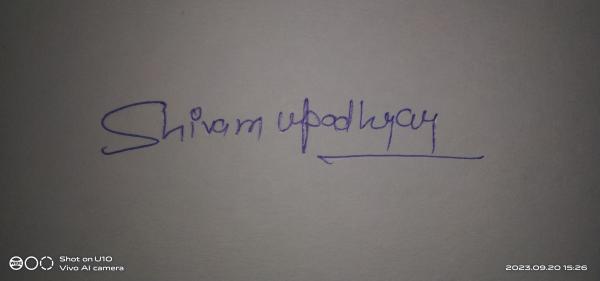 Shivam upadhyay
Shot on U10
Vivo AI camera
2023.09.20 15:26